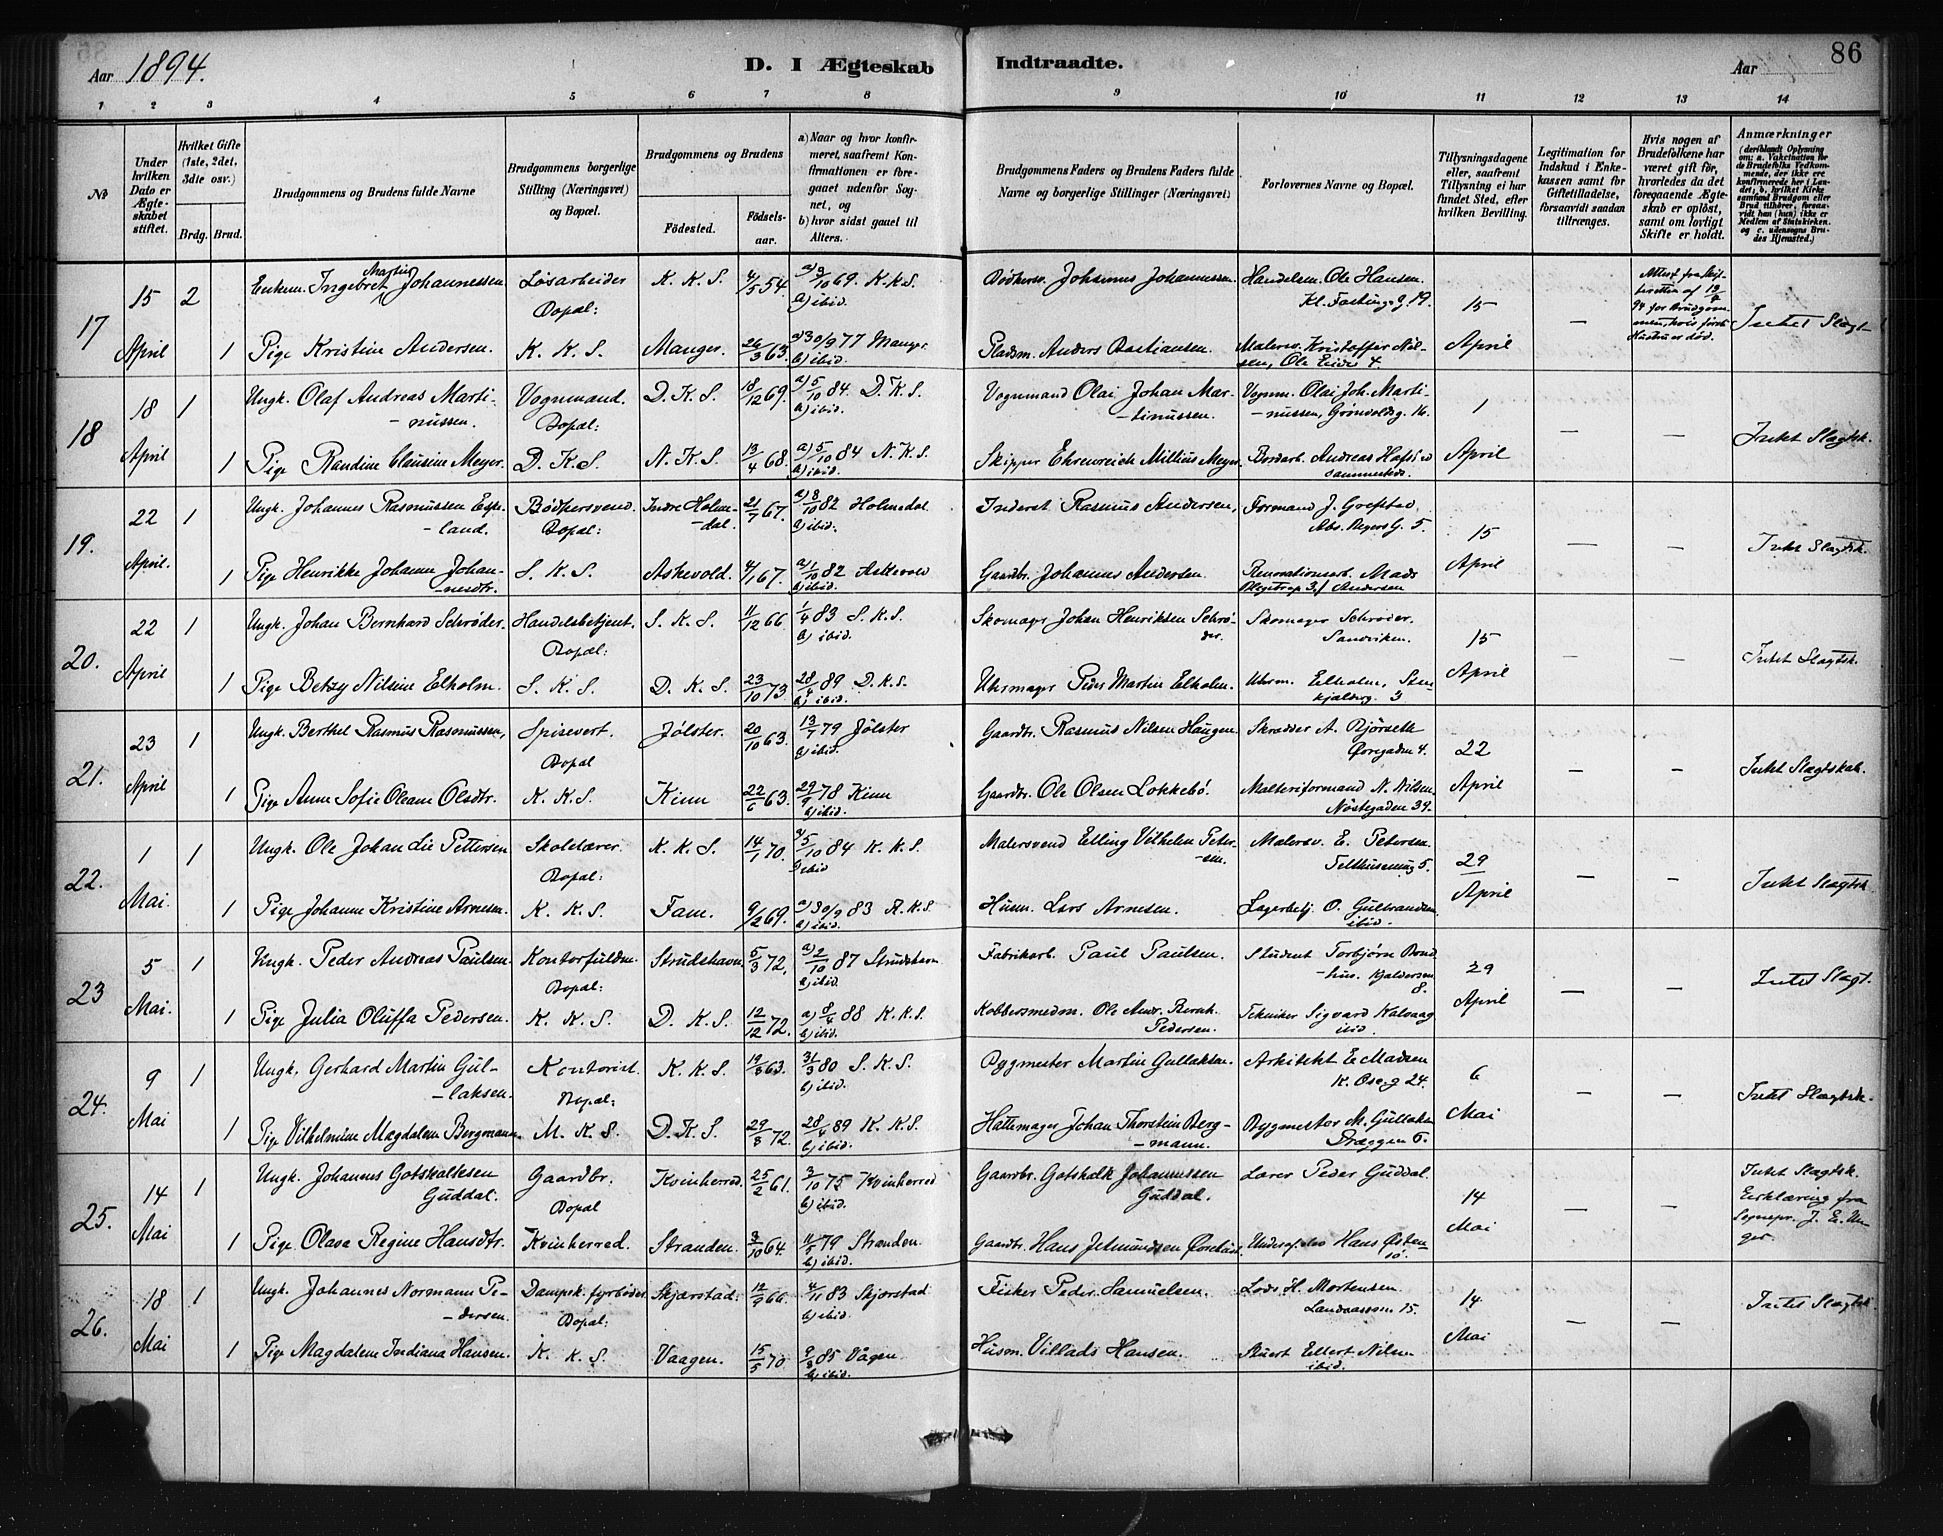 Aar 1894.
D. I Ægteskab Indtraadte.
Aar
86
1 2 3 4 5 6 7 8 9 10 11 12 13 14
No
Under hvilken Dato er Ægteskabet stiftet.
Hvilket Gifte (1ste, 2det, 3die osv.)
Brdg. Brud.
Brudgommens og Brudens fulde Navne
Brudgommens borgerlige Stilling (Næringsvei) og Bopæl.
Brudgommens og Brudens
Fødested.
Fødselsaar.
a) Naar og hvor konfirmeret, saafremt Konfirmationen er foregaaet udenfor Sognet, og
b) hvor sidst gaaet til Alters.
Brudgommens Faders og Brudens Faders fulde Navne og borgerlige Stillinger (Næringsvei)
Forlovernes Navne og Bopæl.
Tillysningsdagene eller, saafremt Tillysning ei har fundet Sted, efter hvilken Bevilling.
Legitimation for Indskud i Enkekassen samt for Giftetilladelse, forsaavidt saadan tiltrænges.
Hvis nogen af Brudefolkene har været gift før, hvorledes da det foregaaende Ægteskab er opløst, samt om lovligt Skifte er holdt.
Anmærkninger (deriblandt Oplysning om: a. Vaccination for de Brudefolks Vedkommende, der ikke ere konfirmerede her i Landet; b. hvilket Kirkesamfund Brudgom eller Brud tilhører, forsaavidt han (hun) ikke er Medlem af Statskirken, og c. udensogns Brudes Hjemsted.)
17 15 April 2 Enkem. Ingebret Martin Johannessen Løsarbeider Bopæl: K. K. S. 4/5 54. a) 3/10 69 K.K.S. b) ibid. Bødkersv. Johannes Johannessen Handelsm. Ole Hansen Kl. Fastings g. 19. 15 April — Attest fra Skifteretten af 13/4 94 for Brudgommen, hvis første Hustru er død. Intet Slægt-
1 Pige Kristine Andersen. K. K. S. Manger. 26/3 63. a) 30/9 77 Manger b) ibid. Pladsm. Anders Bastiansen. Malersv. Kristoffer Nilsen, Ole Eides 4.
18 18 April 1 Ungk. Olaf Andreas Martinussen. Vognmand. Bopæl: D. K. S. 18/12 69. a) 5/10 84 D. K. S. b) ibid. Vognmand Olai Johan Martinussen. Vognm. Olai Joh. Martinussen, Grønvolds g. 16. 1 April — — Intet Slægtsk.
1 Pige Randine Clausine Meyer. D. K. S. N. K. S. 13/4 68. a) 5/10 84 N. K. S. b) ibid. Skipper Ehrenreich Millius Meyer. Bordarb. Andreas Hafsøe sammesteds.
19. 22 April. 1 Ungk. Johannes Rasmussen Espeland. Bødkersvend. Bopæl: Indre Holmedal. 21/7 67. a) 8/10 82 Holmedal b) ibid. Inderst Rasmus Andersen, Formand J. Grefstad Abs. Beyers G. 5. 15 April — — Intet Slægtsk.
1 Pige Henrikke Johanne Johannesdtr. S. K. S. Askevold. 4/1 67. a) 1/10 82 Askevold b) ibid. Gaardbr. Johannes Andersen. Renovationsarb. Mads Andersen
20. 22 April 1 Ungk. Johan Bernhard Schrøder. Handelsbetjent. Bopæl: S. K. S. 11/12 66 1/4 83 S. K. S. b) ibid. Skomager Johan Henriksen Schrøder. Skomager Schrøder. Sandviken. 15 April — — Intet Slægtsk.
1 Pige Betzy Nilsine Elholm. S. K. S. D. K. S. 23/10 73 28/4 89 D.K.S. b) ibid. Uhrmager Martin Elholm. Uhrm. Elholm, Stenkjælderg. 3
21. 23 April 1 Ungk. Berthel Rasmus Rasmussen, Spisevert. Bopæl Jølster. 20/10 63. 13/7 79 Jølster b) ibid. Gaardbr. Rasmus Nilsen Haugen. Skrædder A. Bjørseth Øvregaden 4. 22 April — — Intet Slægtskab.
1 Pige Anne Sofie Oleane Olsdtr. K. K. S. Kinn 22/6 63. 29/9 78 Kinn b) ibid. Gaardbr. Ole Olsen Løkkebø. Malteriformand N. Nilsen, Nøstegaden 39.
22. 1 Mai. 1 Ungk. Ole Johan Lie Pettersen Skolelærer. Bopæl: K. K. S. 14/1 70. a) 5/10 84 K. K. S. b) ibid Malersvend Elling Vilhelm Petersen. Malersv. E. Petersen. 5. 29 April — — Intet Slægtsk.
1 Pige Johanne Kristine Arnesen. K. K. S. Fane. 9/2 69. a) 30/9 83 K.K.S. b) ibid. Husm. Lars Arnesen. Lagerbetj. O. Gulbrandsen ibid.
23 5 Mai. 1 Ungk. Peder Andreas Paulsen. Kontorfuldm. Bopæl: Strudshavn. 5/3 72. a) 2/10 87 Strudshavn b) ibid. Fabrikarb. Paul Paulsen. Student Torbjørn Bondhus. 8. 29 April — — Intet Slægt.
1 Pige Julia Oluffa Pedersen. K. K. S. D. K. S. 12/12 72. a) 8/4 88 K. K. S. b) ibid. Kobbersmedm. Ole Andr. Bernh. Pedersen. Tekniker Sigvard Kalvaag ibid.
24. 9 Mai 1 Ungk. Gerhard Martin Gullaksen. Kontorist. Bopæl: K. K. S. 19/8 63. 31/3 80 S. K. S. b) ibid. Bygmester Martin Gullaksen. Arkitekt E. Madsen K. Oscg 24. 6 Mai — — Intet Slægtsk.
1 Pige Vilhelmine Magdalene Bergmann. M. K. S. D. K. S. 29/8 72. 28/4 89 K. K. S. b) ibid. Hattemager Johan Thorstein Bergmann. Bygmester M. Gullaksen Dræggen 6.
25. 14 Mai 1 Ungk. Johannes Gotskalksen Guddal. Gaardbr. Bopæl Kvinherred. 25/2 61. 3/10 75 Kvinherred b) ibid. Gaardbr. Gotskalk Johannessen Guddal. Lærer Peder Guddal. 14 Mai — — Intet Slægtsk. Erklæring fra Sognepr. J. E. Unger.
1 Pige Olava Regine Hansdtr. Kvinherred. Stranden. 3/10 64. 11/5 79 Stranden b) ibid. Gaardbr. Hans Jetmundsen Hans Østensø.
26. 18 Mai 1 Ungk. Johannes Normann Pedersen. Dampsk. fyrbøder Bopæl: Skjærstad. 12/9 66. 4/11 83 Skjerstad b) ibid. Fisker Peder Samuelsen. Lods H. Mortensen Landaasveien 15. 14 Mai — — Intet Slægtsk.
1 Pige Magdalene Indiana Hansen. K. K. S. Vaagen. 15/5 70 85 Vågen. b) ibid. Husm. Villads Hansen. Stuert Ellert Nilsen ibid.